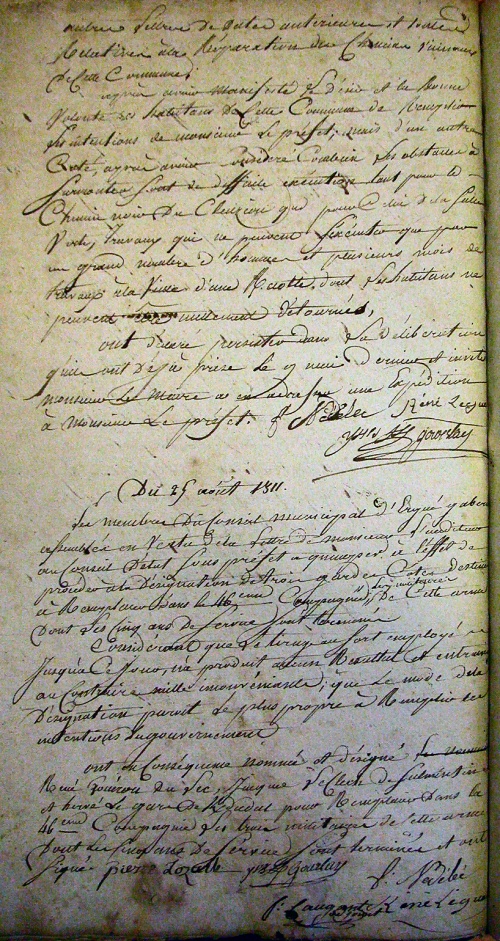 autres lettres de dates antérieures et toutes
Relatives à la Réparation des Chemins vicinaux
de Cette Commune;
après avoir manifesté le désir et la bonne
volonté des habitans de Cette Commune de Remplir
les intentions de monsieur le préfet, mais d'un autre
Coté, après avoir considéré Combien les obstacles à
surmonter sont de difficile exécution tant pour le
Chemin que pour Celui de la
Verte, travaux qui ne peuvent s'exécuter que par
un grand nombre d'hommes et plusieurs mois de
travaux à la veille d'une Récolte dont les habitans ne
peuvent être nullement détournés,
ont déclaré persister dans la délibération
qu'ils ont déjà prise le 9 mai dernier et invité
monsieur Le Maire a en adresser une Expédition
à Monsieur Le préfet. f. Nédélec René
Gourlay
Du 25 août 1811.
Les membres Du Conseil municipal d'Ergué gaberic
assemblés en Vertu de la lettre de monsieur l'auditeur
au Conseil d'état Sous préfet a quimper à l'effet de
procéder à la Désignation de trois gardes Cotes destinés
à Remplacer dans la 46eme Compagnie, les trois militaires de Cette arme
Dont les Cinq ans de service sont terminés
Considérant que le tirage au sort employé
jusqu'à Ce jour, n'a produit aucun Résultat et entraine
au Contraire mille inconvéniants, que le mode de la
Désignation paroit le plus propre à Remplir les
intentions du gouvernement
ont en Conséquence nommé et désigné les nommés
René du Lec, Jacque
et hervé Le gars de pour Remplacer dans la
46eme Compagnie les trois militaires de cette arme
Dont les Cinq ans de service sont terminés et ont
Signé pierre Lozach Gourlay
f. Nédélec
René